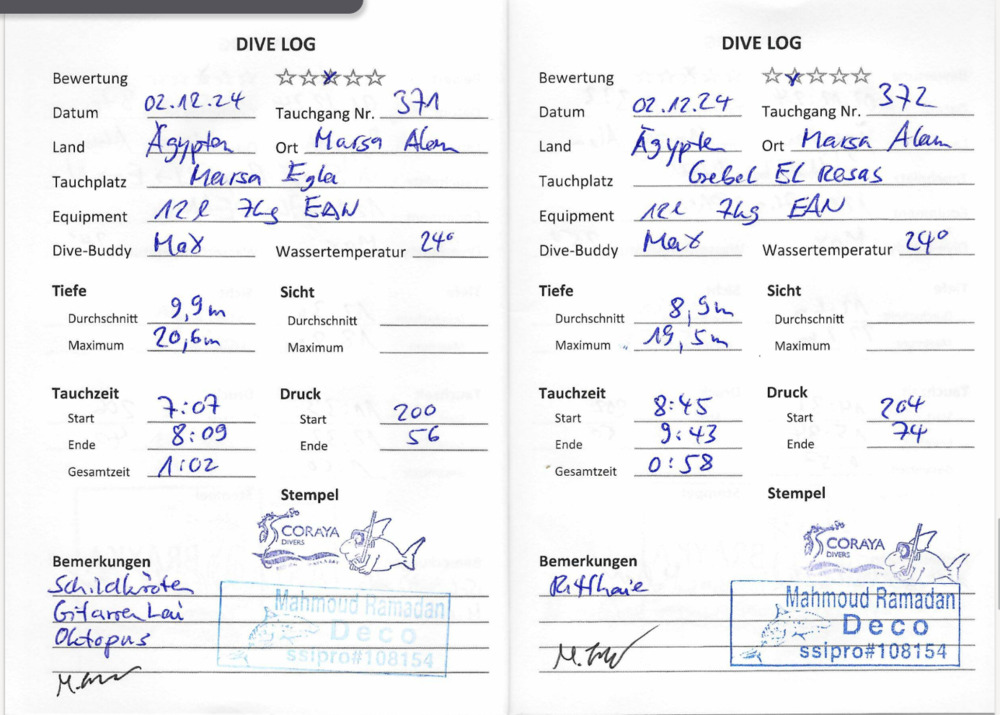 DIVE LOG
Bewertung
Datum 02.12.24 Tauchgang Nr. 371
Land Ägypten Ort Marsa Alam
Tauchplatz Marsa Egla
Equipment 12 l 7kg EAN
Dive-Buddy Max Wassertemperatur 24°
Tiefe Sicht
Durchschnitt 9,9m Durchschnitt
Maximum 20,6m Maximum
Tauchzeit Druck
Start 7:07 Start 200
Ende 8:09 Ende 56
Gesamtzeit 1:02
Stempel
CORAYA
DIVERS
Bemerkungen
Schildkröten
Gitarrenhai
Oktopus
Mahmoud Ramadan
Deco
ssipro#108154
DIVE LOG
Bewertung
Datum 02.12.24 Tauchgang Nr. 372
Land Ägypten Ort Marsa Alam
Tauchplatz Gebel EL Rosas
Equipment 12l 7kg EAN
Dive-Buddy Max Wassertemperatur 24°
Tiefe Sicht
Durchschnitt 8,9m Durchschnitt
Maximum 19,5m Maximum
Tauchzeit Druck
Start 8:45 Start 204
Ende 9:43 Ende 74
Gesamtzeit 0:58
Stempel
CORAYA
DIVERS
Bemerkungen
Riffhaie
Mahmoud Ramadan
Deco
ssipro#108154